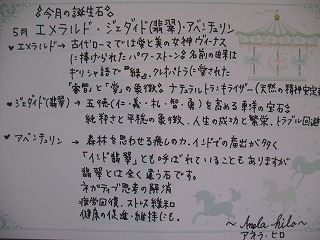 今月の誕生石
5月 エメラルド・ジェダイド(翡翠)・アベンチュリン
♥エメラルド→ 古代ローマでは愛と美の女神ヴィーナス
に捧げられたパワーストーン 名前の由来は
ギリシャ語で「緑」 クレオパトラに愛された
「叡智」と「愛」の象徴 ナチュラルトランキライザー(天然の精神安定
ジェダイド(翡翠)→ 五徳(仁・義・礼・智・勇)を高める東洋の宝石
純粋さと平穏の象徴、人生の成功と繁栄、トラブル回避
♥アベンチュリン → 森林を思わせる癒しの力、インドでの産出が多く
「インド翡翠」とも呼ばれていることもありますが
翡翠とは全く違う石です。
ネガティブ思考の解消
疲労回復、ストレス緩和
健康の促進・維持にも。
～Anela hilo～
アネラ・ヒロ